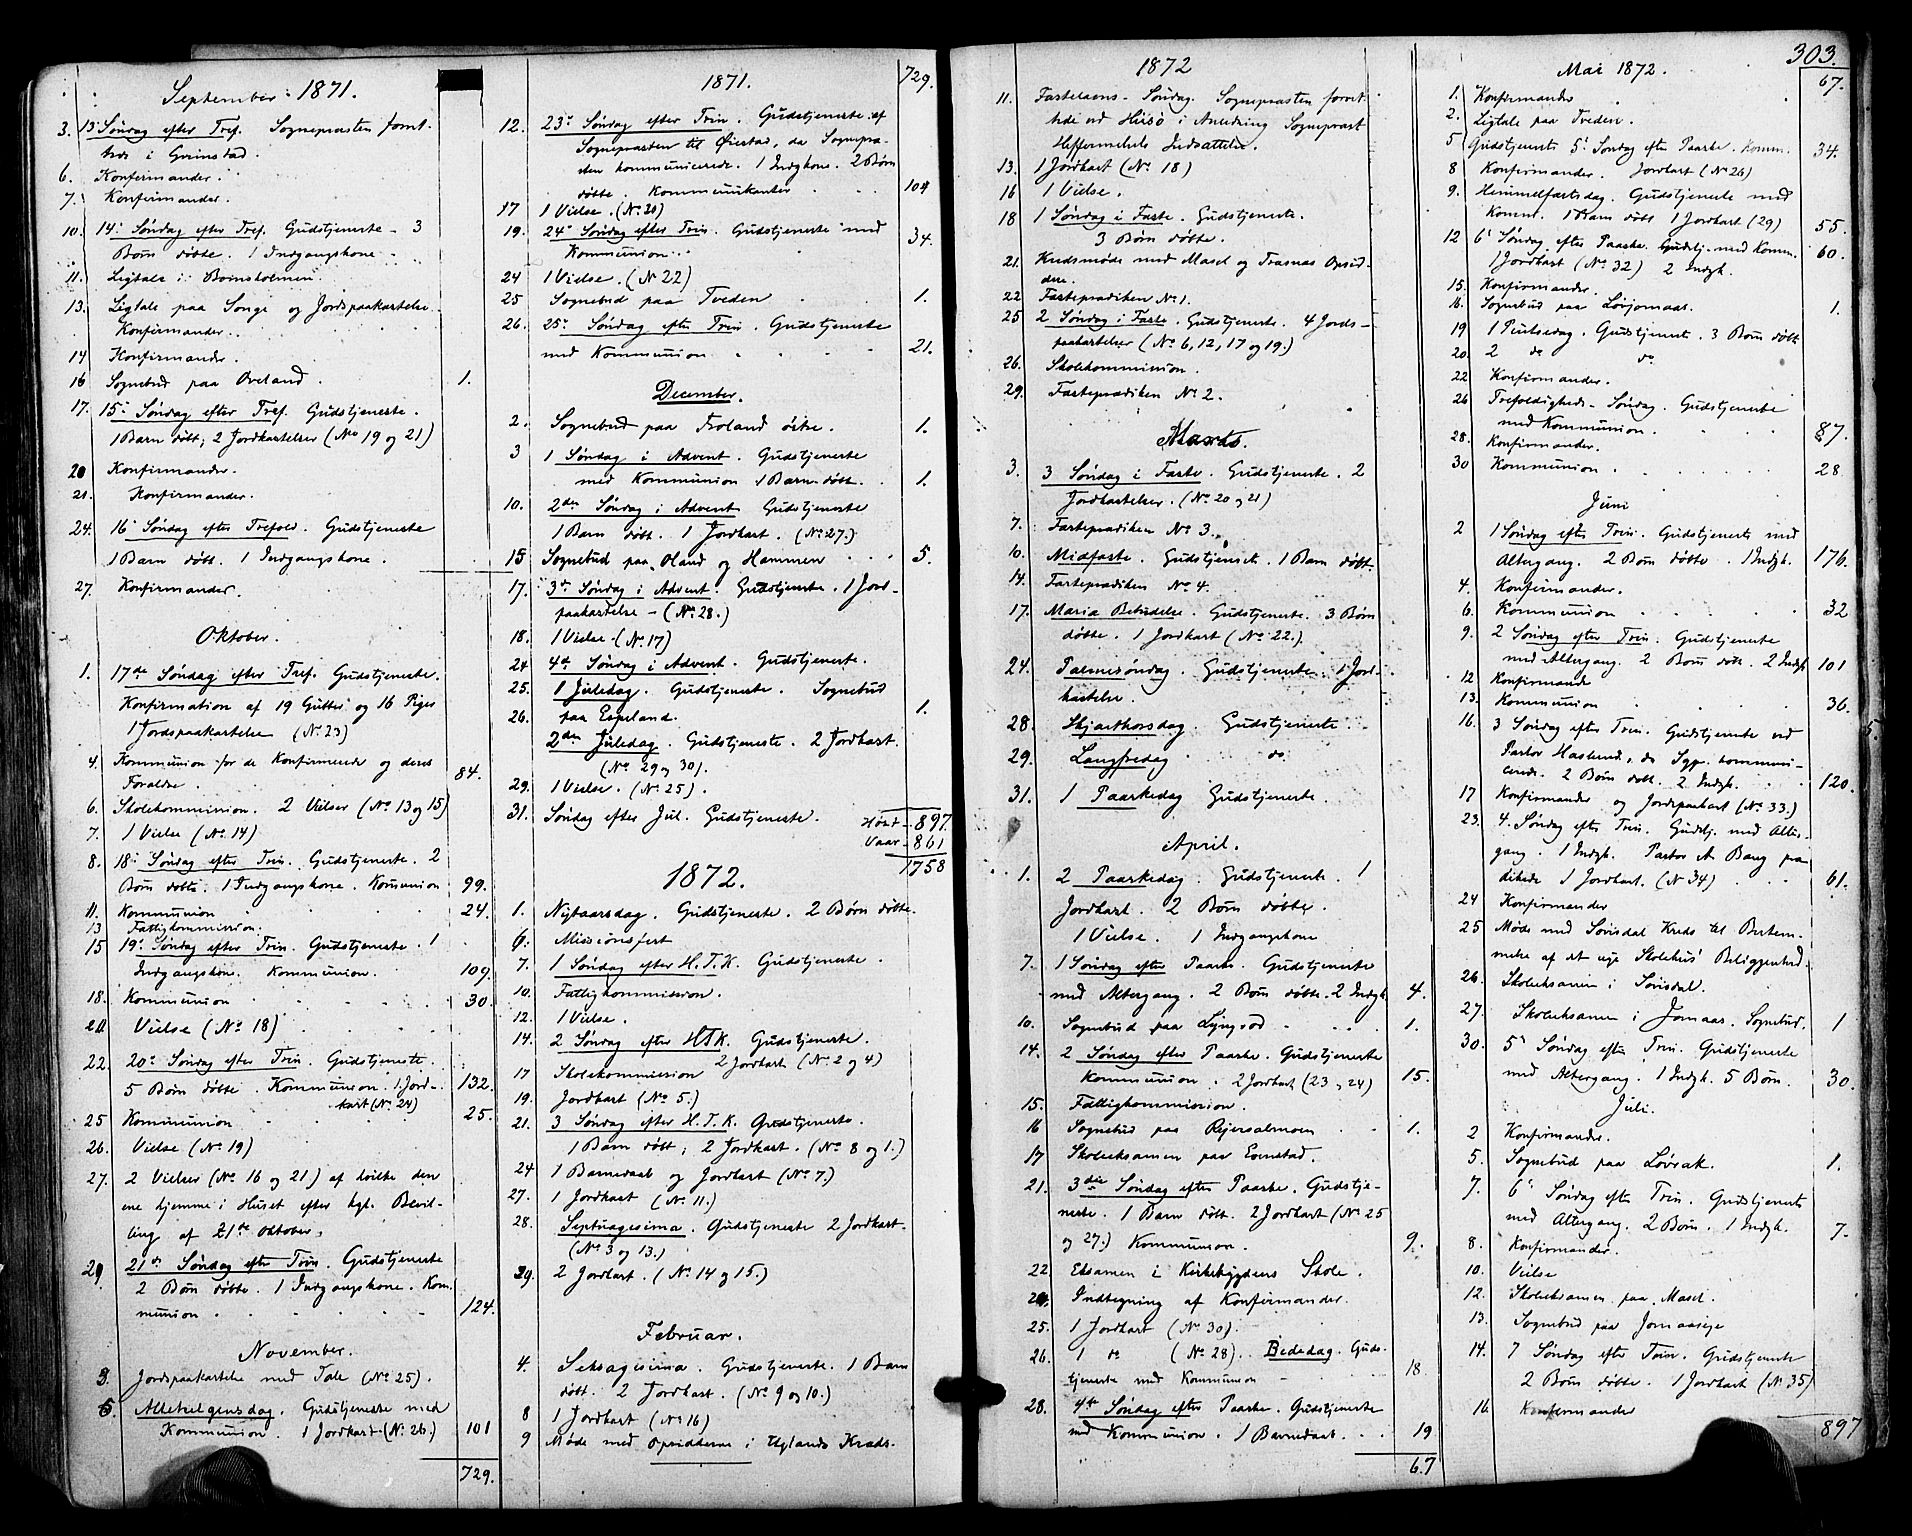 September 1871.
3. 13 Søndag efter Tref. Sognepræsten forret-
tede i Grimstad.
6. Konfirmander.
7. Konfirmander.
10. 14: Søndag efter Tref. Gudstjeneste - 3
Børn døbte. 1 Indgangskone.
11. Ligtale i Bornsholmen.
13. Ligtale paa Songe og Jordspaakastelse.
Konfirmander.
14 Konfirmander.
16 Sognebud paa Øveland. 1.
17. 15: Søndag efter Tref. Gudstjeneste.
1 Barn døbt; 2 Jordkastelser (No 19 og 21)
20 Konfirmander.
21. Konfirmander.
24. 16 Søndag efter Trefold. Gudstjeneste
1 Barn døbt. 1 Indgangskone.
27. Konfirmander.
Oktober.
1. 17de Søndag efter Tref. Gudstjeneste.
Konfirmation af 19 Gutter og 16 Piger
1 Jordspaakastelse (No 23)
4. Kommunion for de Konfirmerede og deres
Forældre. 84.
6. Skolekommission. 2 Vielser (No 13 og 15)
7. 1 Vielse (No 14)
8. 18: Søndag efter Trin. Gudstjeneste. 2
Børn døbte. 1 Indgangskone. Komunion 99.
11. Kommunion 24.
13 Fattigkommission.
15 19: Søndag efter Trin. Gudstjeneste. 1
Indgangskone. Kommunion. 109.
18. Kommunion 30.
20 Vielse (No 18)
22. 20: Søndag efter Trin. Gudstjeneste.
5 Børn døbte. Kommunion. 1 Jord- 132.
kast (No 24)
25 Kommunion 25.
26. Vielse (No 19)
27. 2 Vielser (No 16 og 21) af hvilke den
ene hjemme i Huset efter kgl. Bevil-
ling af 21de Oktober.
29 21de Søndag efter Trin. Gudstjeneste
2 Børn døbte. 1 Indgangskone. Kom-
munion. 124.
November.
3. Jordspaakastelse med Tale (No 25).
5. Allehelgensdag. Gudstjeneste med
Kommunion. 1 Jordkast (No 26.) 101
729.
1871. 729.
12. 23: Søndag efter Trin. Gudstjeneste af
Sognepræsten til Øiestad, da Sognepræ-
sten kommunicerede. 1 Indgkone. 2 Børn
døbte. Kommunikanter 104
17 1 Vielse. (No 20)
19. 24: Søndag efter Trin. Gudstjeneste med 34.
Kommunion.
24 1 Vielse. (No 22)
25 Sognebud paa Tveden 1.
26. 25: Søndag efter Trin. Gudstjeneste
med Kommunion 21.
December.
2. Sognebud paa Froland østre. 1.
3 1 Søndag i Advent. Gudstjeneste
med Kommunion 1 Barn døbt. 1.
10. 2den Søndag i Advent Gudstjeneste
1 Barn døbt. 1 Jordkast. (No 27.)
15 Sognebud paa Øland og Hammeren 5.
17. 3de Søndag i Advent. Gudstjeneste. 1 Jord-
paakastelse - (No 28.)
18. 1 Vielse. (No 17)
24 4de Søndag i Advent. Gudstjeneste.
25. 1 Juledag. Gudstjeneste. Sognebud
paa Espeland. 1.
26. 2den Juledag. Gudstjeneste. 2 Jordkast.
(No 29 og 30).
29. 1 Vielse. (No 25).
31. Søndag efter Jul. Gudstjeneste.
Høst - 897.
Vaar - 861
1758
1872.
1. Nytaarsdag. Gudstjeneste. 2 Børn døbte.
6. Missionsfest
7. 1 Søndag efter H.T.K. Gudstjeneste.
10. Fattigkommission.
12. 1 Vielse.
14. 2 Søndag efter HTK. Gudstjeneste.
2 Jordkast (No 2 og 4)
17 Skolekommission
19. Jordkast (No 5.)
21. 3 Søndag efter H.T.K. Gudstjeneste.
1 Barn døbt; 2 Jordkast. (No 8 og 1.)
24 1 Barnedaab og Jordkast (No 7)
27. 1 Jordkast (No 11.)
28. Septuagesima. Gudstjeneste 2 Jordkast.
(No 3 og 13.)
29. 2 Jordkast. (No 14 og 15.)
Februar.
4. Seksagesima. Gudstjeneste. 1 Barn
døbt. 2 Jordkast. (No 9 og 10.)
8 1 Jordkast (No 16)
9 Møde med Opsidderne i Uglands Kreds.
1872
11. Fastelavns-Søndag. Sognepræsten forret-
tede ved Hisø i Anledning Sognepræst
Heffermehls Indsættelse.
13. 1 Jordkast (No 18)
16 1 Vielse.
18 1 Søndag i Faste. Gudstjeneste.
3 Børn døbte.
21. Kredsmøde med Masel og Trasnæs Opsid-
dere.
22 Fasteprædiken No 1.
25 2 Søndag i Faste. Gudstjeneste. 4 Jords-
paakastelser (No 6, 12, 17 og 19.)
26. Skolekommission.
29. Fasteprædiken No 2.
Marts.
3. 3 Søndag i Faste. Gudstjeneste. 2
Jordkastelser. (No 20 og 21)
7. Fasteprædiken No 3.
10. Midfaste. Gudstjeneste. 1 Barn døbt.
14. Fasteprædiken No 4.
17. Maria Bebudelse. Gudstjeneste. 3 Børn
døbte. 1 Jordkast (No 22.)
24. Palmesøndag. Gudstjeneste. 1 Jord-
kastelse.
28. Skjærthorsdag. Gudstjeneste.
29. Langfredag do
31. 1 Paaskedag Gudstjeneste.
April.
1. 2 Paaskedag. Gudstjeneste. 1
Jordkast. 2 Børn døbte.
1 Vielse. 1 Indgangskone
7. 1 Søndag efter Paaske. Gudstjeneste
med Altergang. 2 Børn døbte. 2 Indgk. 4.
10. Sognebud paa Lyngrod 1.
14. 2 Søndag efter Paaske. Gudstjeneste
Kommunion. 2 Jordkast (23 og 24) 15.
15. Fattigkommission.
16 Sognebud paa Reiersølmoen 1.
17 Skoleeksamen paa Evenstad.
21. 3die Søndag efter Paaske. Gudstje-
neste. 1 Barn døbt. 2 Jordkast (No 25
og 27.) Kommunion. 9.
22 Eksamen i Kirkebygdens Skole.
24. Indtegning af Konfirmander.
25. 1 Jordkast (No 30).
26. 1 do (No 28). Bededag. Guds-
tjeneste med Kommunion 18
28. 4de Søndag efter Paaske. Gudstjeneste
med Kommunion. 1 Barnedaab. 19
67
303.
Mai 1872. 67.
1. Konfirmander
2. Ligtale paa Tveden.
5 Gudstjeneste 5: Søndag efter Paaske. Komm. 34.
8 Konfirmander. Jordkast (No 26)
9. Himmelfartsdag. Gudstjeneste med
Komm. 1 Barn døbt 1 Jordkast (29) 55.
12 6: Søndag efter Paaske. Gudstj. med Komm. 60.
1 Jordkast (No 32) 2 Indgk.
15. Konfirmander.
16. Sognebud paa Løvjomaas. 1.
19 1 Pintsedag. Gudstjeneste. 3 Børn døbt.
20. 2 do do
22 Konfirmander.
26 Trefoldigheds-Søndag. Gudstjeneste
med Kommunion. 87.
28. Konfirmander.
30 Kommunion. 28
Juni
2 1 Søndag efter Trin. Gudstjeneste med
Altergang. 2 Børn døbte. 1 Indgk. 176.
4. Konfirmander.
6. Kommunion 32
9. 2 Søndag efter Trin. Gudstjeneste
med Altergang. 2 Børn døbt. 2 Indgk 101
12 Konfirmander
13. Kommunion 36.
16. 3 Søndag efter Trin. Gudstjeneste ved
Pastor Haslund, da Sgp. kommuni-
cerede. 2 Børn døbt. 2 Indgk. 120.
17 Konfirmander og Jordspaakast (No 33.)
23. 4. Søndag efter Trin. Gudstj. med Alter-
gang. 1 Indgk. Pastor A Bang præ-
dikede 1 Jordkast. (No 34) 61.
24 Konfirmander
25 Møde med Sørisdal Kreds til Bestem-
melse af det nye Skolehus' Beliggenhed.
26. Skoleeksamen i Sørisdal.
27. Skoleeksamen i Jomaas. Sognebud. 1
30. 5: Søndag efter Trin. Gudstjeneste
med Altergang. 1 Indgk. 5 Børn. 30.
Juli.
2 Konfirmander.
5. Sognebud paa Løvrak. 1.
7. 6: Søndag efter Trin. Gudstjeneste
med Altergang. 2 Børn. 1 Indgk. 7.
8. Konfirmander.
10. Vielse
12. Skoleeksamen paa Masel.
13. Sognebud paa Jomaasige
14. 7 Søndag efter Trin. Gudstjeneste
2 Børn døbte. 1 Jordkast (No 35)
16. Konfirmander
897